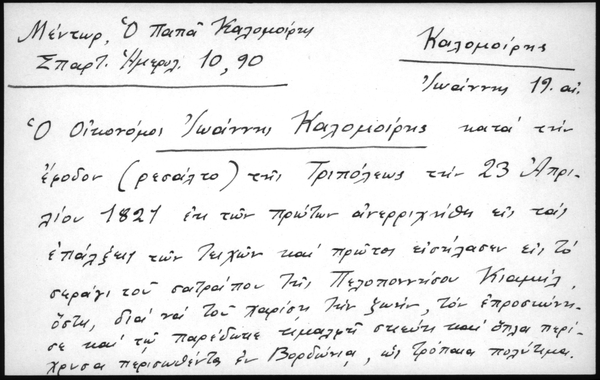 Μέντωρ, Ὁ Παπᾶ Καλομοίρης
Σπαρτ. Ἡμερολ. 10, 90
Καλομοίρης
Ἰωάννης 19. αἰ.
Ὁ Οἰκονόμος Ἰωάννης Καλομοίρης κατά τήν
ἔφοδον (ρεσάλτο) τῆς Τριπόλεως τήν 23 Ἀπρι-
λίου 1821 ἐκ τῶν πρώτων ἀνερριχήθη εἰς τάς
ἐπάλξεις τῶν τειχῶν καί πρῶτος εἰσήλασεν εἰς τό
σεράγι τοῦ σατράπου τῆς Πελοποννήσου Κιαμήλ,
ὅστις, διά νά τοῦ χαρίση τήν ζωήν, τόν ἐπροσκύνη-
σε καί τῷ παρέδωκε τιμαλφῆ σκεύη καί ὅπλα περί-
χρυσα περισωθέντα ἐν Βορδώνια, ὡς τρόπαια πολύτιμα.